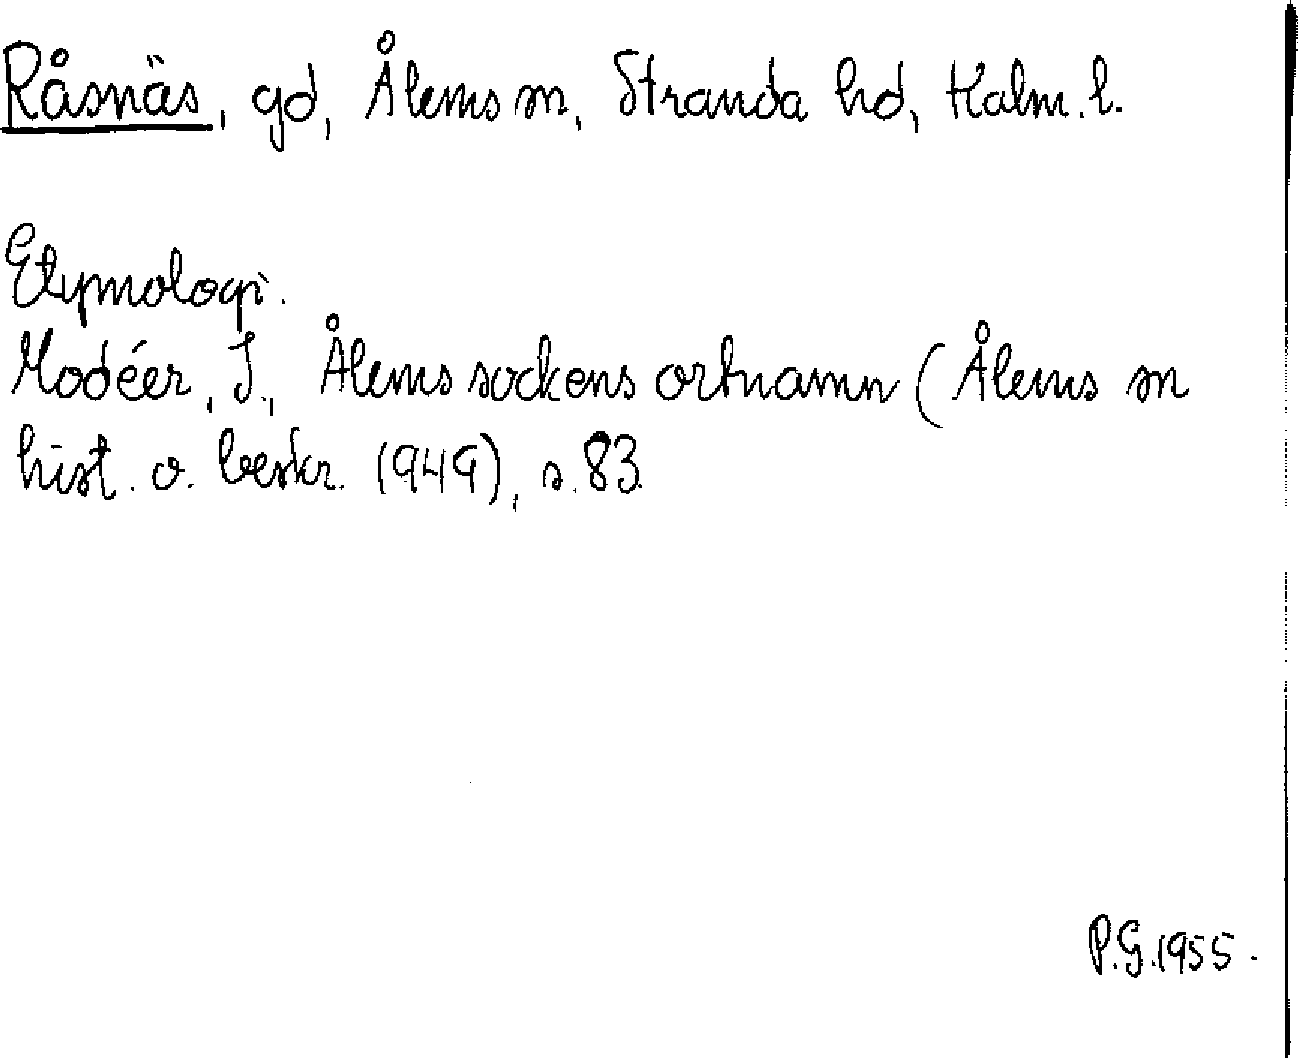 Råsnäs, gd, Ålems sn, Stranda hd, Kalm. l.
Etymologi.
Modéer, I., Ålems sockens ortnamn (Ålems sn
hist. o. beskr. (1949), s. 83.
P.G. 1955.